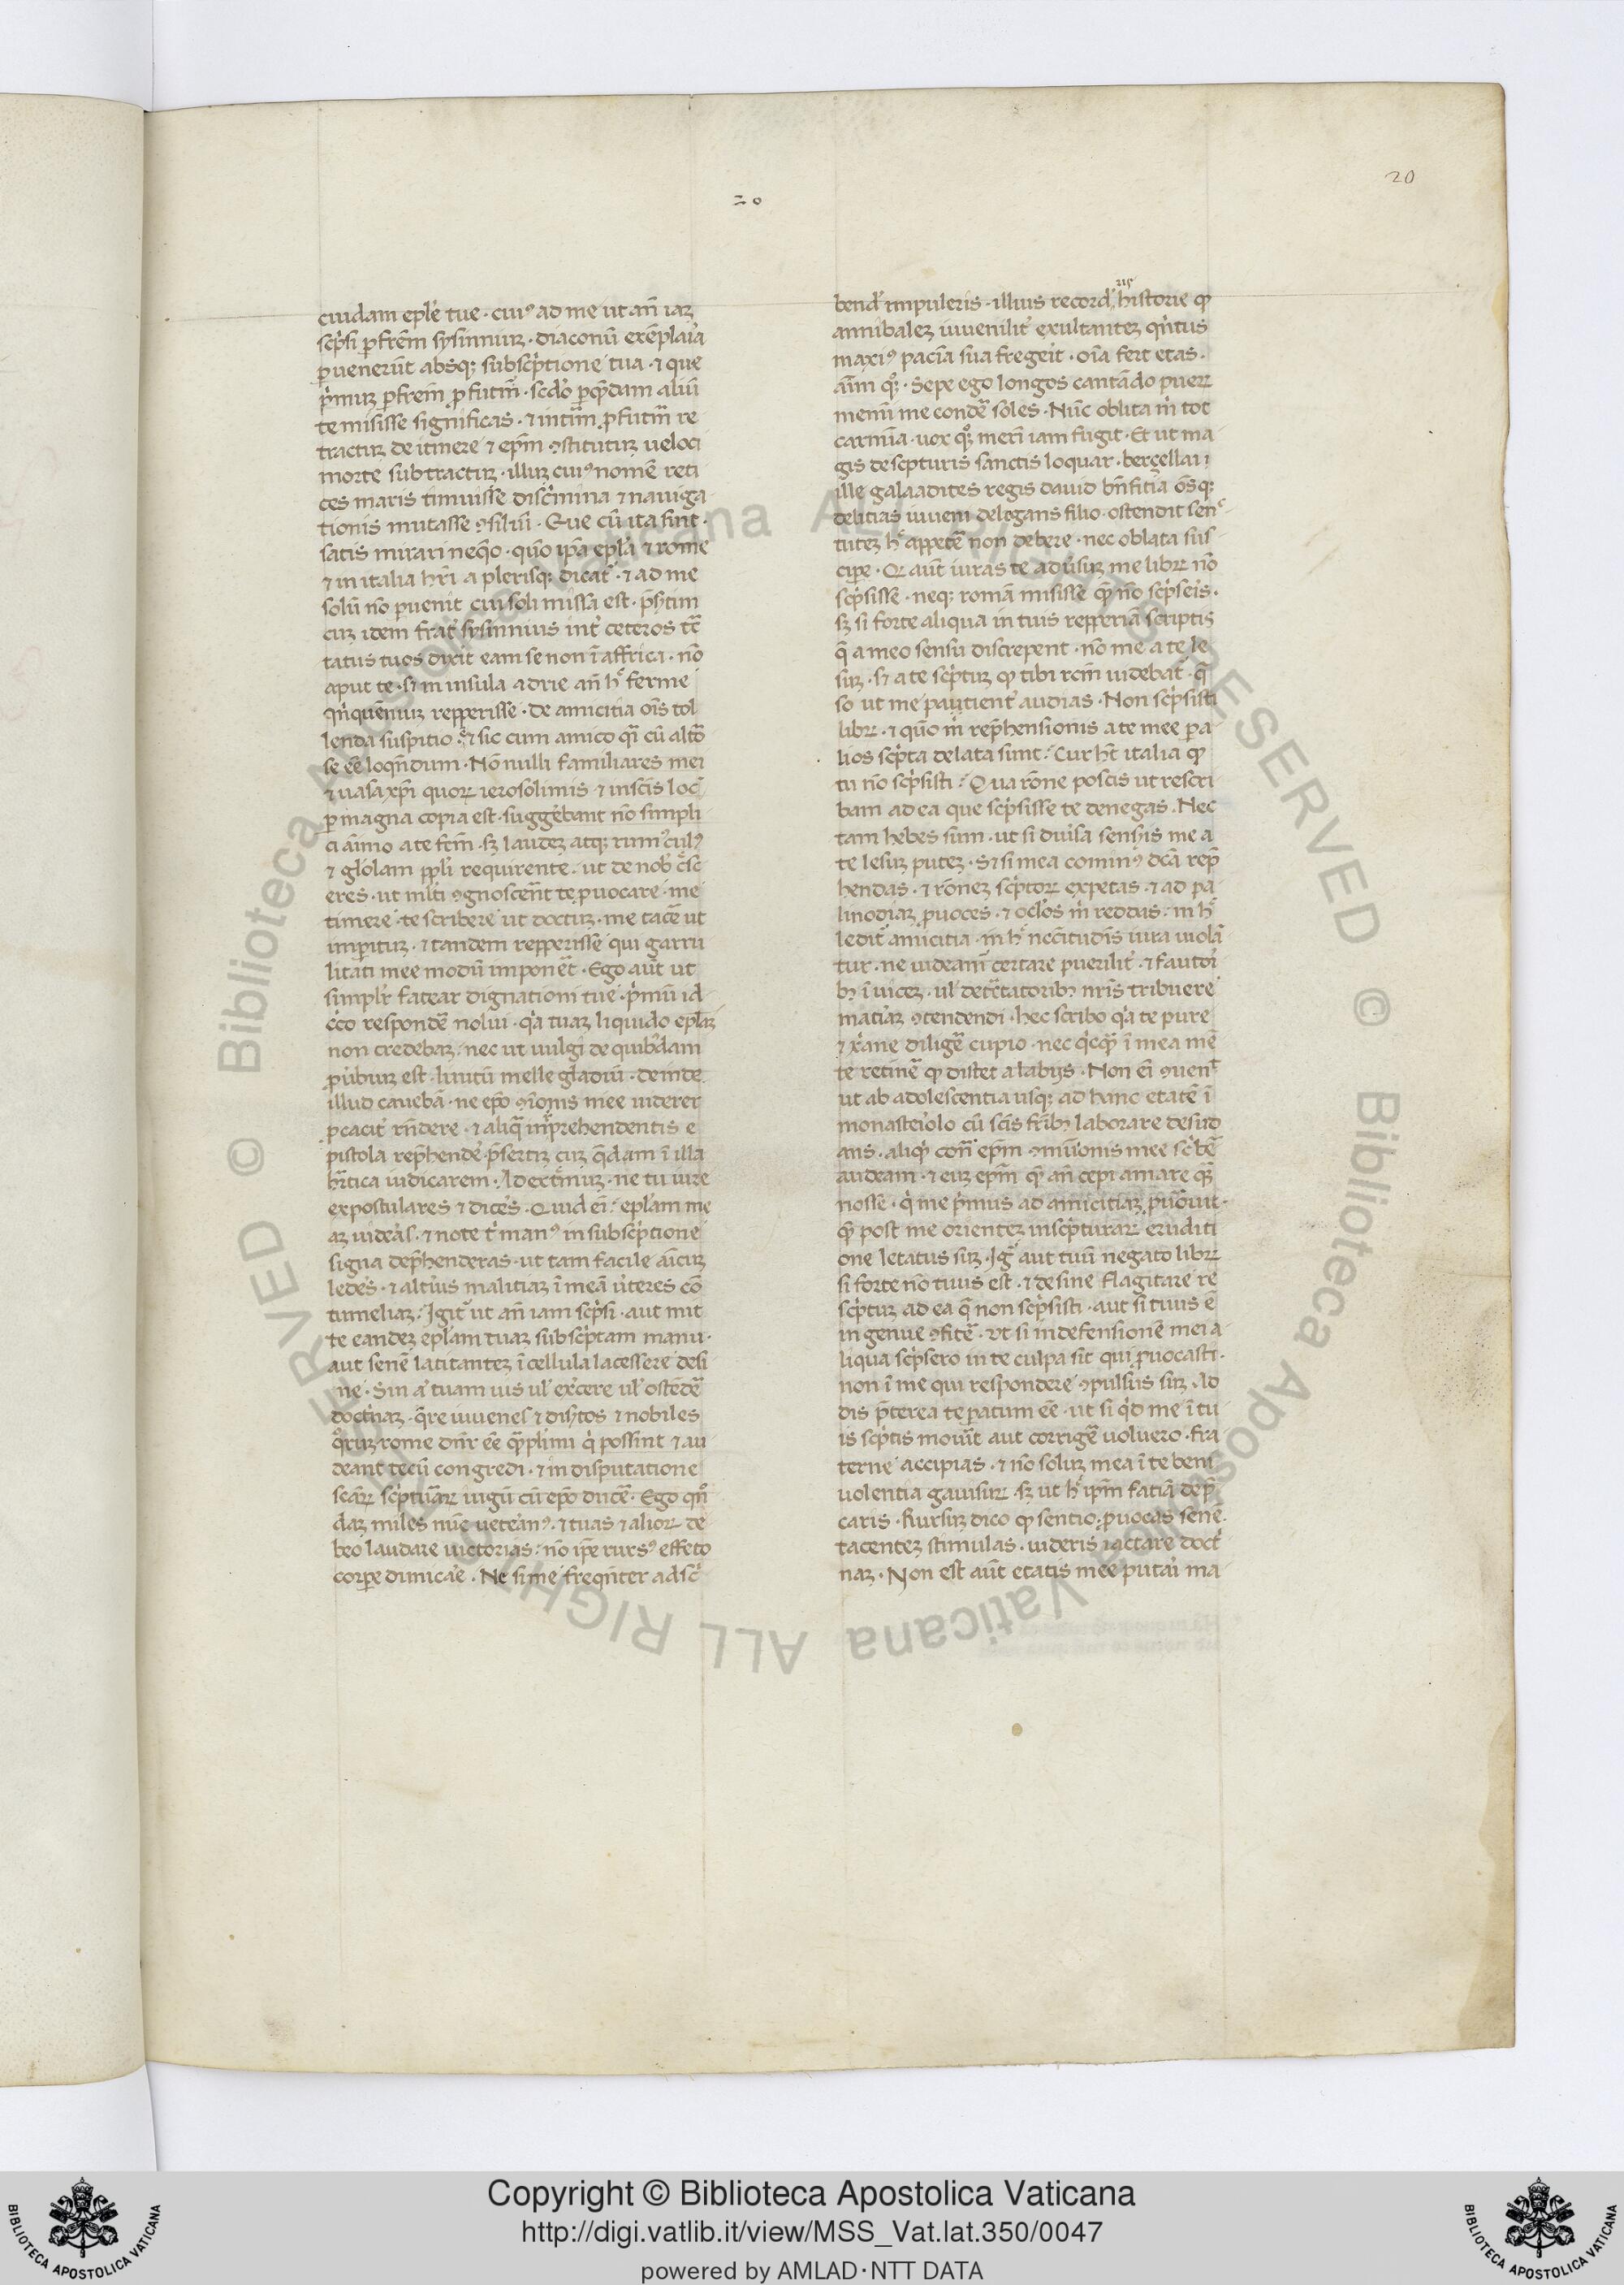 20
20
cuidam epl'e tue · cui⁹ ad me ut an̄ iaꝫ
scp̍si ꝑ fr̄em sysinniuꝫ · diaconū exēplaria
ꝑuenerūt absqꝫ subscp̍tione tua · ⁊ que
p̍muꝫ ꝑ frem̄ ꝓfutuꝝ̄ · scd̄o ꝑ q̄ndam aliū
te misisse significas · ⁊ int̄im ꝓfutuꝝ̄ re
tractuꝫ de itinere ⁊ ep̄m ꝯstitutuꝫ ueloci
morte subtractuꝫ · illuꝫ cui⁹ nomē reti
ces maris timuisse discrimina ⁊ nauiga
tionis mutasse ꝯsiliū · Que cū ita sint ·
satis mirari neq̄o · quō ip̄a epl'a ⁊ rome
⁊ in italia hr̄i a plerisqꝫ dicat᷑ · ⁊ ad me
solū nō ꝑuenit cui soli missa est · p̄s̄tim
cuꝫ idem frat᷑ sysinnius int᷑ ceteros tc̄
tatus tuos dixit eam se non ī affrica · nō
aput te · s; in insula adrie an̄ h᷑ ferme
qn̍quēniuꝫ repperisse · de amicitia ois̄ tol
lenda suspitio · ⁊ sic cum amico q̄i cū alt̄o
se ēe loqn̄dum · Nō nulli familiares mei
⁊ uasa xp̄i quoꝝ ierosolimis ⁊ in scīs loc̄
ꝑ magna copia est · suggerebant nō simpli
ci aīmo a te fcm̄ · sꝫ laudeꝫ atqꝫ rumusculos
⁊ gl'olam ppl'i requirente · ut de nob̄ c̄sc
eres · ut ml'ti ꝯgnoscerēt te ꝓuocare · me
timere · te scribere ut doctuꝫ · me tacē ut
imperituꝫ · ⁊ tandem repperissē qui garru
litati mee modū imponēt · Ego aūt ut
simpl'r fatear dignationi tue · p̍mū id
c̍co respondē nolui · q̍a tuaꝫ liquido epl'aꝫ
non credebaꝫ · nec ut uulgi de quib'dam
ꝓuerbiuꝫ est · litutū melle gladiū · deinde
illud cauebā · ne ep̄o ꝯionis mee uiderer
ꝓcacit᷑ rn̄dere · ⁊ aliq̄ in rp̄rehendentis e
pistola rep̄hendē p̄sertiꝫ cuꝫ q̄dam ī illa
hr̄tica iudicarem · Ad extimuꝫ · ne tu iure
expostulares ⁊ diceres · Quid ei᷑ · epl'am me
aꝫ uideras · ⁊ note t̍ man⁹ in subscp̍tione
signa dep̄henderas · ut tam facile aīcuꝫ
lederes · ⁊ altius malitiaꝫ ī meā uerteres cō
tumeliaꝫ · Igit᷑ ut an̄ iam scp̍si · aut mit
te eandeꝫ epl'am tuaꝫ subscp̍tam manu ·
aut senē latitanteꝫ ī cellula lacessere desi
ne · Sin a᷑ tuam uis ul' exercere ul' ostēdē
doctrinaꝫ · q̄re iuuenes ⁊ disertos ⁊ nobiles
quoruꝫ rome dn̄r ēe q̄mplimi q̍ possint ⁊ au
deant tecū congredi · ⁊ in disputatione
scāꝝ scp̍turaꝝ iugū cū ep̄o ducē · Ego qn̄
daꝫ miles nūc ueteran⁹ · ⁊ tuas ⁊ alioꝝ de
beo laudare uictorias · nō ip̄e rurs⁹ effeto
corꝑe dimicare · Ne si me freqn̄ter ad sc̍
bend᷑ impuleris · illius record᷑ ris historie ꝙ
annibaleꝫ iuuenilit᷑ exultanteꝫ qn̍tus
maxi⁹ pacīa sua fregerit · oīa fert etas ·
aīm qꝫ · Sepe ego longos cantādo pueꝝ
memī me condē soles · Nūc oblita m̍ tot
carmīa · uox qꝫ merī iam fugit · Et ut ma
gis de scpturis sanctis loquar · berçellai
ille galaadites regis dauid bn̄fitia oēsqꝫ
delitias iuueni delegans filio · ostendit sen
tuteꝫ h᷑ appetē non debere · nec oblata sus
cipe · Q aūt iuras te aduersuꝫ me libꝝ nō
scp̍sisse · neqꝫ romā misisse q̄ nō scp̍seris ·
sꝫ si forte aliqua in tuis repperiā scriptis
q̄ a meo sensu discrepent · nō me a te le
suꝫ · s; a te scp̍tuꝫ ꝙ tibi rcm̄ uidebat᷑ · q̄
so ut me patient᷑ audias · Non scp̍sisti
libꝝ · ⁊ quō m̍ rep̄hensionis a te mee ꝑ a
lios scp̍ta delata sunt · Cur h᷑t italia ꝙ
tu nō scp̍sisti · Qua rōne poscis ut rescri
bam ad ea que scp̍sisse te denegas · Nec
tam hebes sum · ut si diuersa senseris me a
te lesuꝫ puteꝫ · S; si mea comin⁹ dcā rep̄
hendas · ⁊ rōneꝫ scp̍toꝝ expetas · ⁊ ad pa
linodiaꝫ ꝓuoces · ⁊ ocl'os m̍ reddas · in h᷑
ledit᷑ amicitia · in h᷑ neccitudīs iura uiolā
tur · ne uideam᷑ certare puerilit᷑ · ⁊ fautori
bꝫ ī uiceꝫ · ul' detractatoribꝫ nr̄is tribuere
mat̍aꝫ ꝯtendendi · hec scribo q̍a te pure
⁊ xp̍ane diligē cupio · nec q̍cq̄ ī mea mē
te retinē ꝙ distet a labijs · Non ei᷑ ꝯuen᷑
ut ab adolescentia usqꝫ ad hanc etatē ī
monasteriolo cū scīs fr̄ibꝫ laborare desud
ans · aliq̍ contr̄ ep̄m ꝯmūionis mee sc̍bē
audeam · ⁊ euꝫ ep̄m q̄ an̄ cepi amare q̄ꝫ
nosse · q̍ me p̍mus ad amicitiaꝫ ꝓuocauit ·
q̄ post me orienteꝫ in scp̍turaꝝ eruditi
one letatus suꝫ · Ig᷑ aut tuū negato libꝝ
si forte nō tuus est · ⁊ desine flagitare re
scp̍tuꝫ ad ea q̄ non scp̍sisti · aut si tuus ē
ingenue ꝯfitē · Ut si in defensionē mei a
liqua scp̍sero in te culpa sit qui ꝓuocasti ·
non ī me qui respondere ꝯpulsus suꝫ · Ad
dis p̄terea te paratum ēe · ut si q̍d me ī tu
is scp̍tis mouerit aut corrigē uoluero · fra
terne accipias · ⁊ nō soluꝫ mea ī te beni
uolentia gauisuꝝ · sꝫ ut h᷑ ip̄m fatiā dep̄
caris · Rursuꝫ dico ꝙ sentio · ꝓuocas senē ·
tacenteꝫ stimulas · uideris iactare doct̍
naꝫ · Non est aūt etatis mee putari ma
Copyright © Biblioteca Apostolica Vaticana
http://digi.vatlib.it/view/MSS_Vat.lat.350/0047
powered by AMLAD·NTT DATA